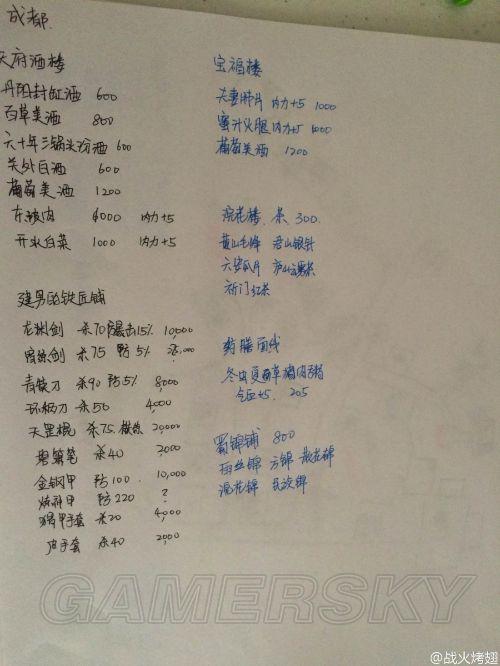 成都.
天府酒楼
丹阳封缸酒 600
百草美酒 800
六十年三锅头汾酒 600
关外白酒 600
葡萄美酒 1200
东坡肉 4000 内力+5
开水白菜 1000 内力+5
建男的铁匠铺
龙渊剑 杀70 暴击15% 10,000
杀75 防5%
青锋刀 杀90 防5% 8000
环柄刀 杀50 4,000
天罡棍 杀75. 20,000
判官笔 杀40 2000
金钢甲 防100. 10,000
炼锁甲 防220 ?
猬甲手套 杀20 4000
皮手套 杀40 2000
宝福楼
夫妻肺片 内力+5 1000
蜜汁火腿 内力+5 1000
葡萄美酒 1200
浣花楼. 茶 300.
黄山毛峰 君山银针
六安瓜片 庐山云雾茶
祁门红茶
药膳面线
冬虫夏草瘦肉粥
气血+5. 205
蜀锦铺 800
雨丝锦 方锦 散花锦
浣花锦 民族锦
GAMERSKY
@战火烤翅